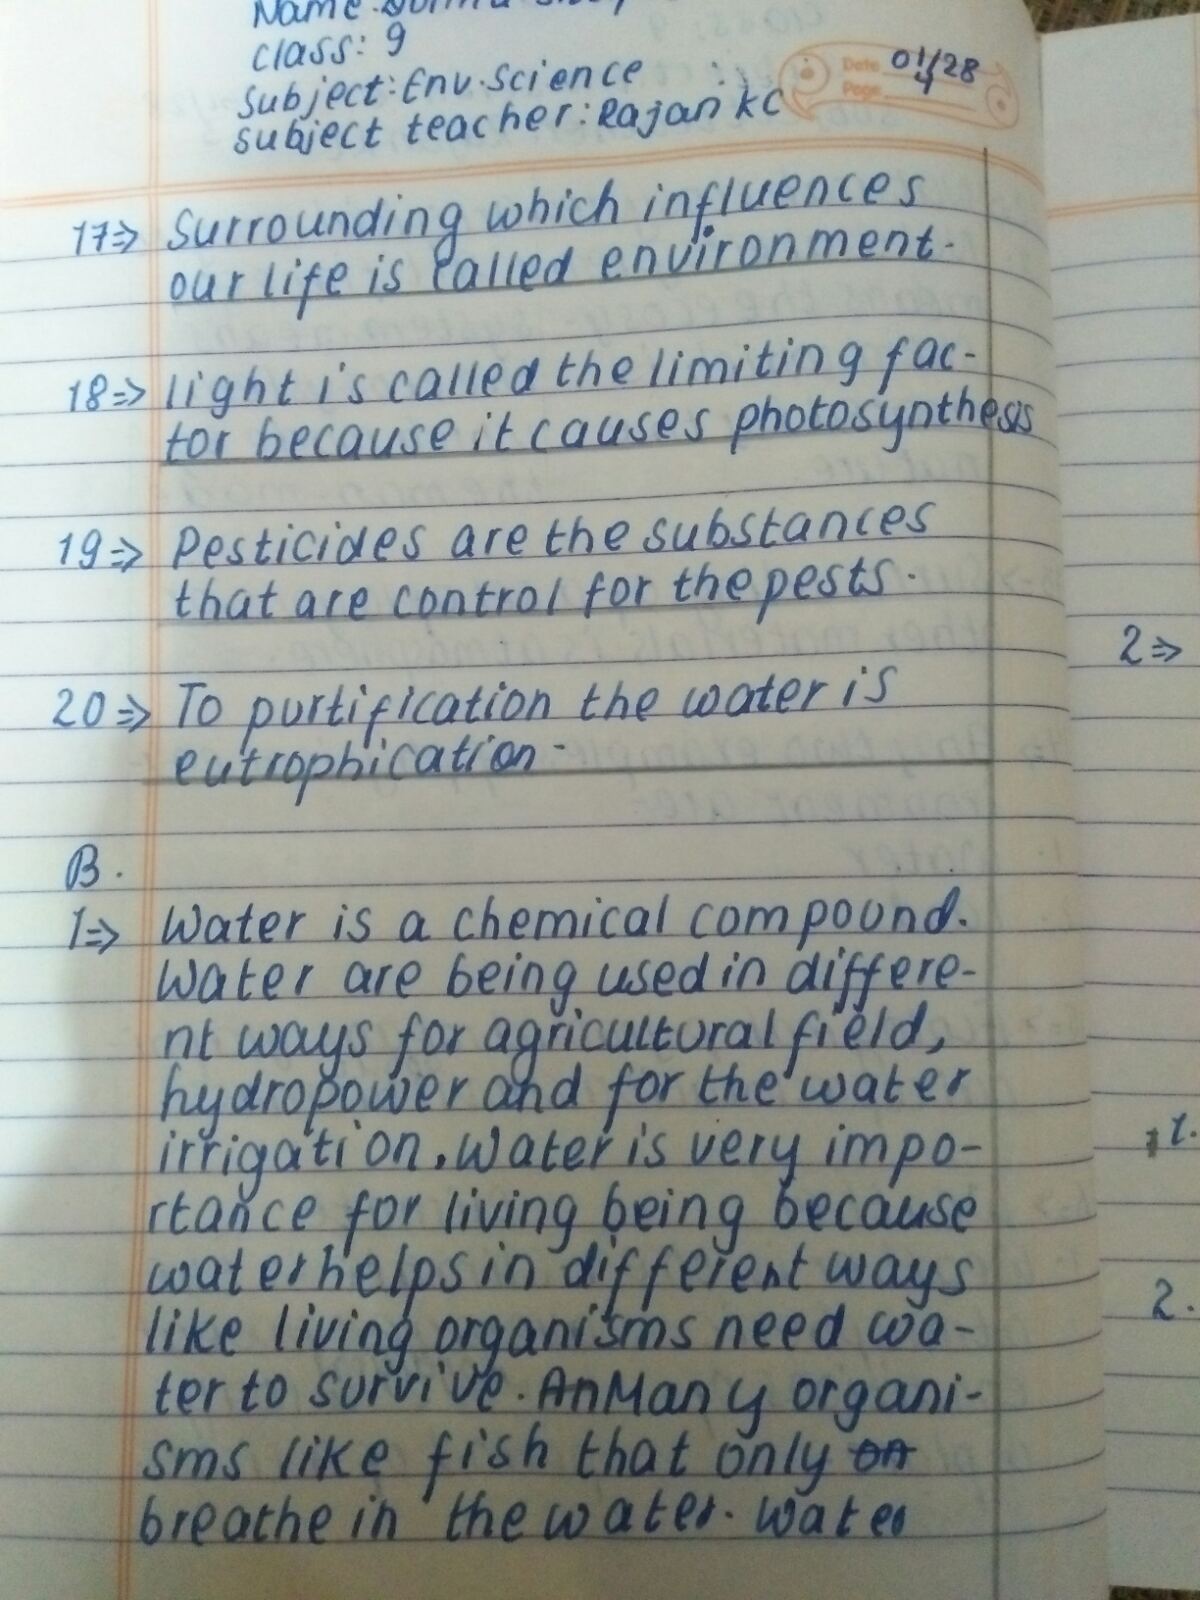 Name:
class: 9
Subject: Env. Science
Subject teacher: Rajan KC
Date 01/28
Page
17⇒ Surrounding which influences
our life is called environment.
18⇒ light is called the limiting fac-
tor because it causes photosynthesis
19⇒ Pesticides are the substances
that are control for the pests.
20⇒ To purtification the water is
eutrophication-
B.
1⇒ Water is a chemical compound.
Water are being used in differe-
nt ways for agricultural field,
hydropower and for the water
irrigation. Water is very impo-
rtance for living being because
water helps in different ways
like living organisms need wa-
ter to survive. AnMany organi-
sms like fish that only
breathe in the water. Water
2⇒
1.
2.